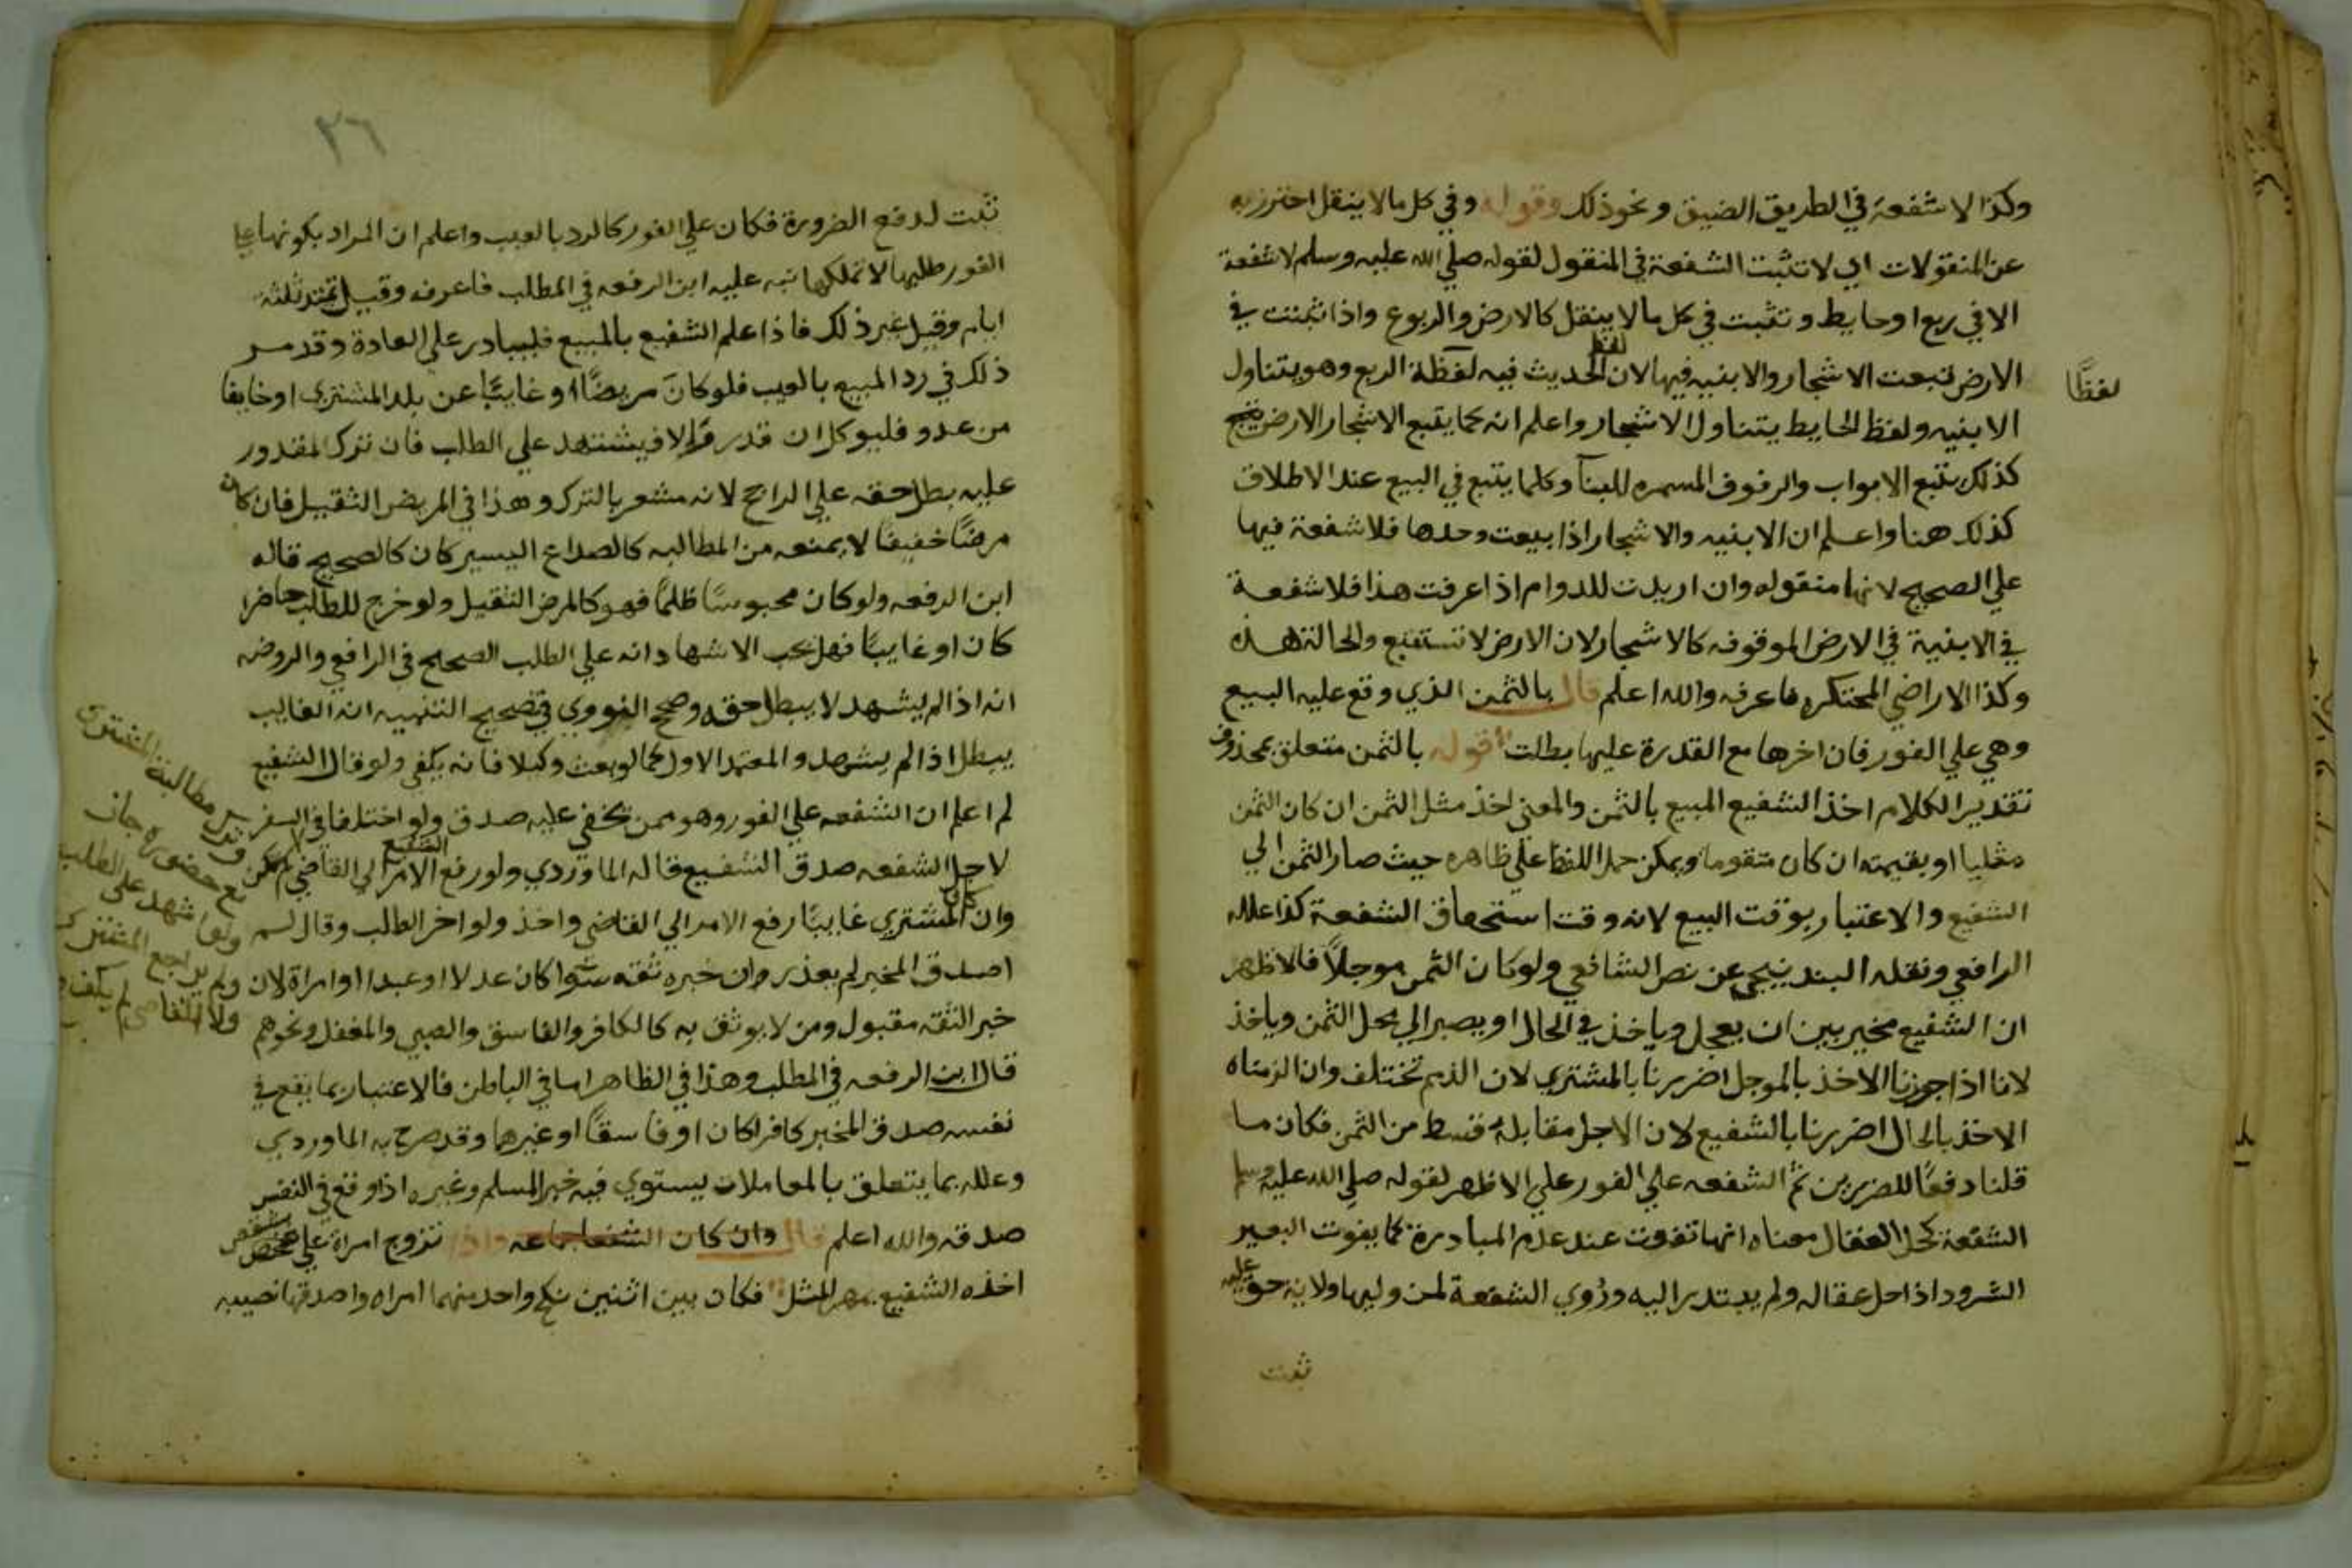 وكذا لا شفعة في الطريق الضيق ونحو ذلك وقوله وفي كل مالا ينقل احترز به
عن المنقولات اي لا تثبت الشفعة في المنقول لقوله صلي الله عليه وسلم لا شفعة
الا في ربع او حايط وتثبت في كل ما لا ينقل كالارض والربوع واذا ثبتت في
الارض تبعت الاشجار والابنيه فيها لان لفظ الحديث فيه لفظة الربع وهو يتناول
لفظًا
الابنيه ولفظ الحايط يتناول الاشجار واعلم انه كما يتبع الاشجار الارض
كذلك يتبع الابواب والرفوف المسمره للبنآ وكلما يتبع في البيع عند الاطلاق
كذلك هنا واعلم ان الابنيه والاشجار اذا بيعت وحدها فلا شفعة فيها
علي الصحيح لانها منقوله وان اريدت للدوام اذا عرفت هذا فلا شفعة
في الابنية في الارض الموقوفه كالاشجار لان الارض لا تستتبع والحالة هذه
وكذا الاراضي المحتكره فاعرفه والله اعلم قال بالثمن الذي وقع عليه البيع
وهي علي الفور فان اخرها مع القدرة عليها بطلت قوله بالثمن متعلق بمحذوف
تقدير الكلام اخذ الشفيع المبيع بالثمن والمعني اخذ مثل الثمن ان كان الثمن
مثليا او بقيمته ان كان متقوما ويمكن حمل اللفظ علي ظاهره حيث صار الثمن الي
الشفيع والاعتبار بوقت البيع لانه وقت استحقاق الشفعة كذا علله
الرافعي ونقله البندنيجي عن نص الشافعي ولو كان الثمن موجلاً فالاظهر
ان الشفيع مخير بين ان يعجل وياخذ في الحال او يصبر الي محل الثمن وياخذ
لانا اذا جوزنا الاخذ بالموجل اضررنا بالمشتري لان الذمم تختلف وان الزمناه
الاخذ بالحال اضررنا بالشفيع لان الاجل مقابله قسط من الثمن فكان ما
قلنا دفعًا للضررين ثم الشفعه علي الفور علي الاظهر لقوله صلي الله عليه وسلم
الشفعة كحل العقال معناه انها تفوت عند عدم المبادرة كما يفوت البعير
الشرود اذا حل عقاله ولم يبتدر اليه ورُوي الشفعة لمن وليها ولانه حق
ثبت
٢٦
ثبت لدفع الضرورة فكان علي الفور كالرد بالعيب واعلم ان المراد بكونها علي
الفور طلبها لا تملكها نبه عليه ابن الرفعه في المطلب فاعرفه وقيل تمتد ثلثة
ايام وقيل غير ذلك فاذا علم الشفيع بالمبيع فليبادر علي العادة وقد مر
ذلك في رد المبيع بالعيب فلو كان مريضًا او غايبًا عن بلد المشتري او خايفا
من عدو فليوكل ان قدر والا فيشهد علي الطلب فان ترك المقدور
عليه بطل حقه علي الراجح لانه مشعر بالترك وهذا في المريض الثقيل فان كان
مرضًا خفيفا لا يمنعه من المطالبه كالصداع اليسير كان كالصحيح قاله
ابن الرفعه ولو كان محبوسًا ظلمًا فهو كالمرض الثقيل ولو خرج للطلب حاضرا
كان او غايبًا فهل يجب الاشهاد انه علي الطلب الصحيح في الرافعي والروضه
انه اذا لم يشهد لا يبطل حقه وصحح النووي في تصحيح التنبيه ان الغايب
يبطل اذا لم يشهد والمعتمد الاول كما لو بعث وكيلا فانه يكفي ولو قال الشفيع
لم اعلم ان الشفعه علي الفور وهو ممن يخفي عليه صدق ولو اختلفا في السفر
لاجل الشفعه صدق الشفيع قاله الماوردي ولو رفع الشفيع الامر الي القاضي
وان كان المشتري غايبًا رفع الامر الي القاضي واخذ ولو اخر الطلب وقال لم
اصدق المخبر لم يعذر وان خبره ثقه سوا كان عدلا او عبدا او امراة لان
خبر الثقه مقبول ومن لا يوثق به كالكافر والفاسق والصبي والمغفل ونحوهم
قال ابن الرفعه في المطلب وهذا في الظاهر اما في الباطن فالاعتبار بما يقع في
نفسه صدق المخبر كافرا كان او فاسقًا او غيرهما وقد صرح به الماوردي
وعلله بما يتعلق بالمعاملات يستوي فيه خبر المسلم وغيره اذا وقع في النفس
صدقه والله اعلم قال وان كان الشفعا جماعه واذا تزوج امراة علي شقص
اخذه الشفيع بمهر المثل فكان بين اثنين نكح واحد منهما امراه واصدقها نصيبه
مطالبة المشتري
مع حضوره جاز
ولو اشهد على الطلب
ولم يراجع المشتري
ولا القاضي لم يكف